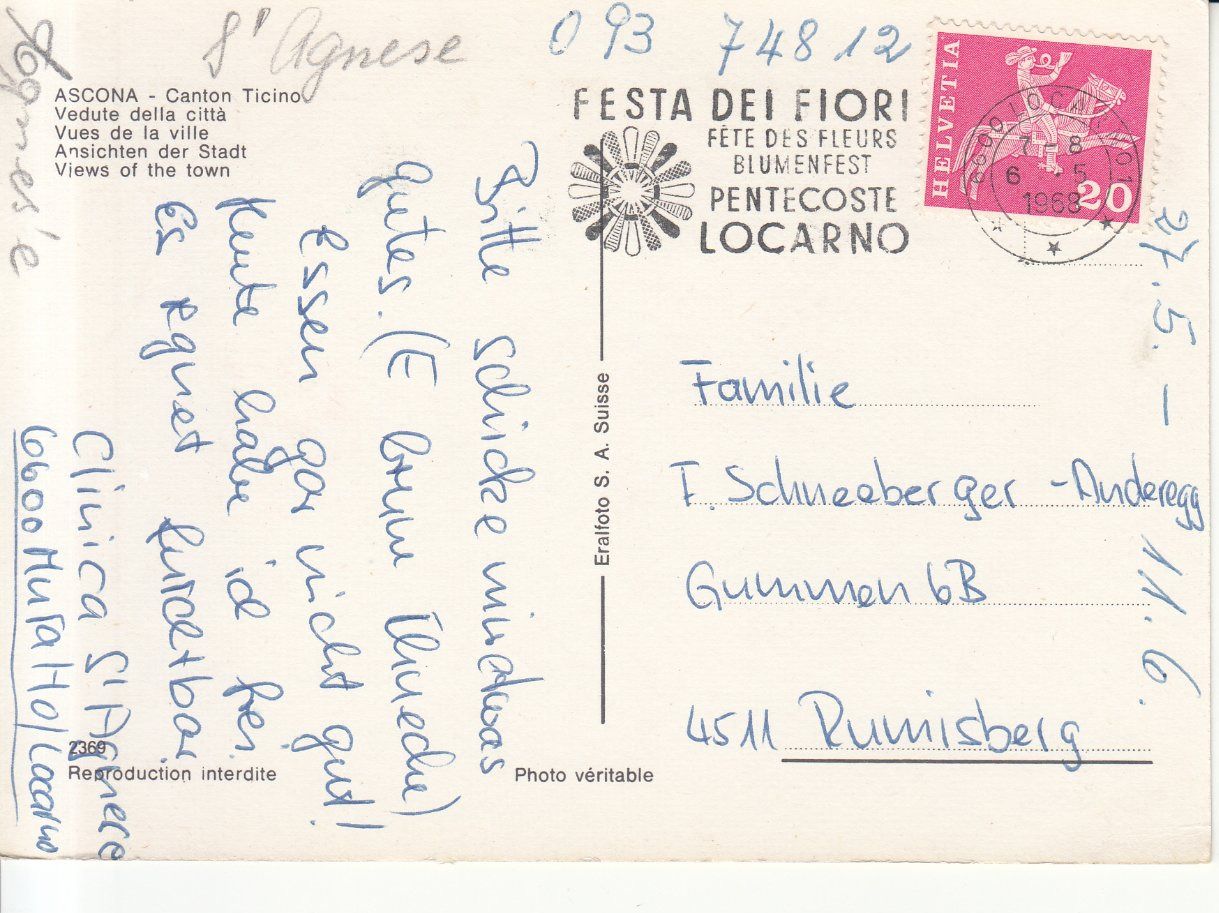 S' Agnese
093 74812
Agnes'e
ASCONA - Canton Ticino
Vedute della città
Vues de la ville
Ansichten der Stadt
Views of the town
FESTA DEI FIORI
FÊTE DES FLEURS
BLUMENFEST
PENTECOSTE
LOCARNO
HELVETIA
20
6600 LOCARNO 1
7-8
6 5
1968
Bitte schicke mir etwas
gutes. (E
Essen gar nicht gut!
Heute habe ich frei.
Es regnet furchtbar.
Clinica S' Agnese
6600 Muralto/Locarno
Eralfoto S. A. Suisse
Familie
F. Schneeberger-Anderegg
Gummen 6B
4511 Rumisberg
27.5. - 11.6.
2369
Reproduction interdite
Photo véritable